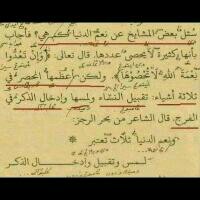 سئل بعض المشايخ عن نعم الدنيا كم هي؟ فأجاب
بأنها كثيرة لا يحصى عددها. قال تعالى: ﴿وَإِنْ تَعُدُّوا
نِعْمَةَ اللَّهِ لَا تُحْصُوهَا﴾. ولكن أعظمها انحصر في
ثلاثة أشياء: تقبيل النساء ولمسها وإدخال الذكر في
الفرج. قال الشاعر من بحر الرجز:
ونعم الدنيا ثلاث تعتبر
لمس وتقبيل وإدخال الذكر